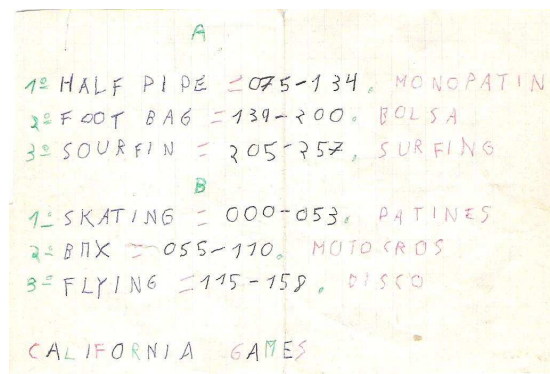 A
1º HALF PIPE = 075-134. MONOPATIN
2º FOOT BAG = 139-200. BOLSA
3º SOURFIN = 205-257. SURFING
B
1º SKATING = 000-053. PATINES
2º BMX = 055-110. MOTOCROS
3º FLYING = 115-158. DISCO
CALIFORNIA GAMES